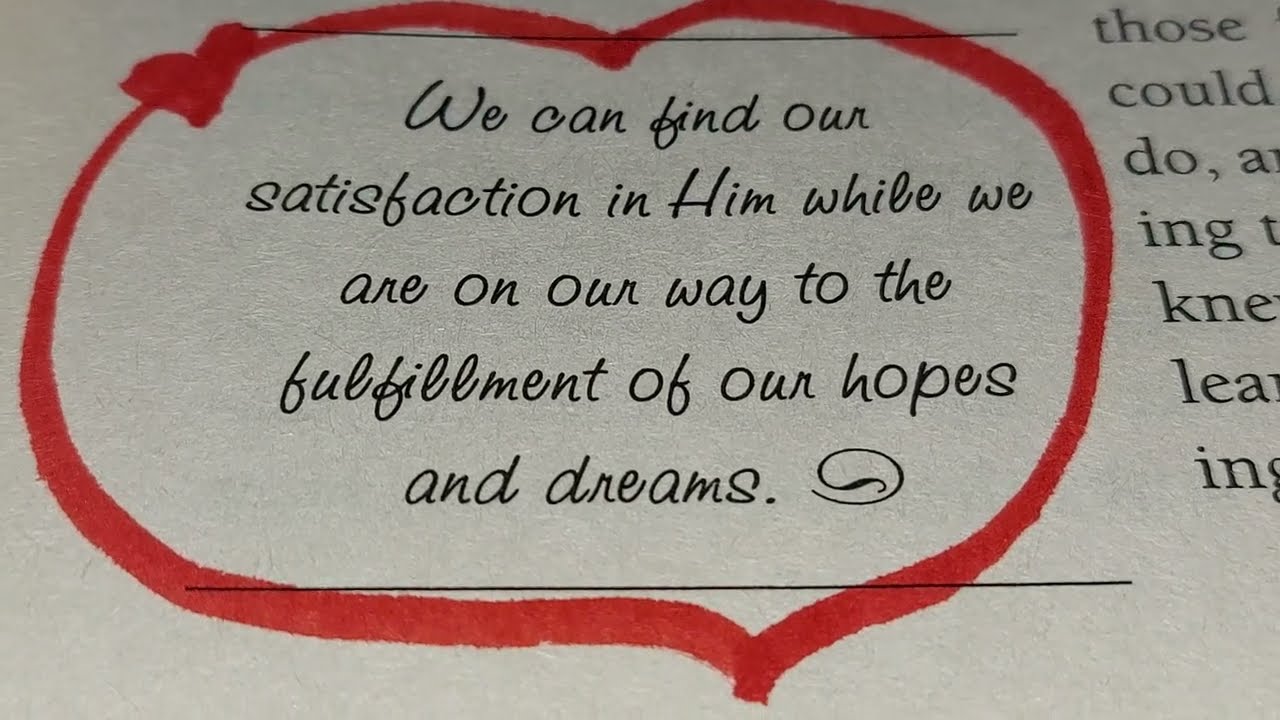 We can find our
satisfaction in Him while we
are on our way to the
fulfillment of our hopes
and dreams.
those
could
do,
ing